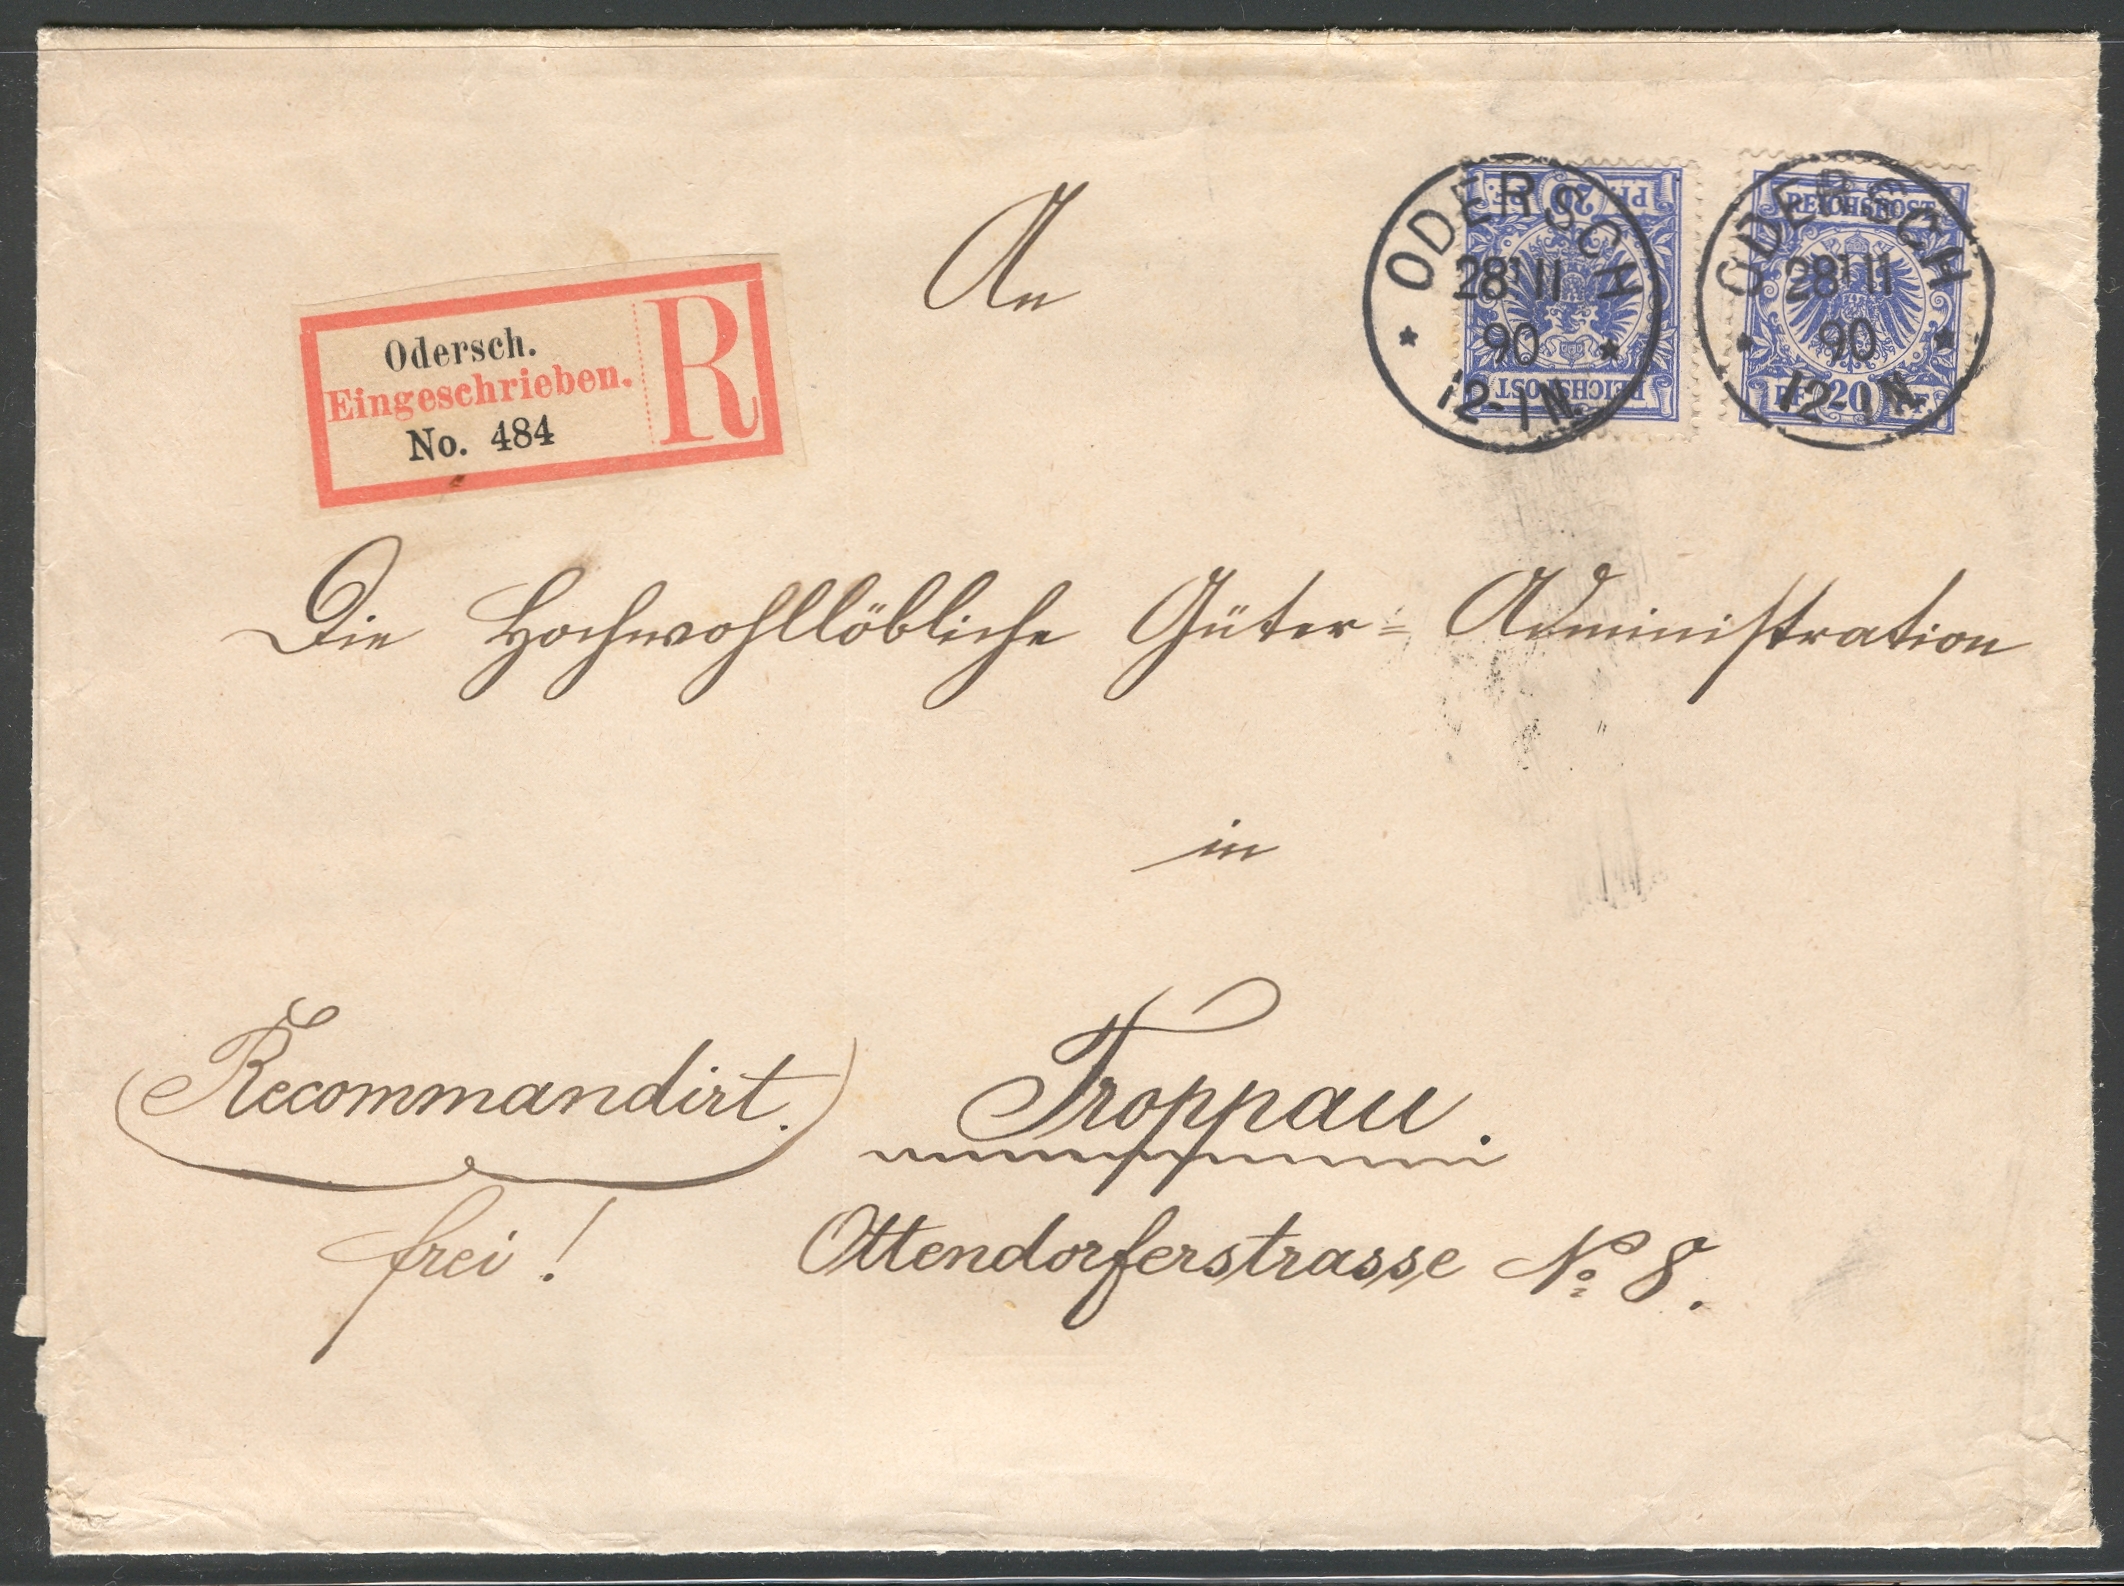 An
ODERSCH
28 11
90
12-1N.
PF. 20 PF.
REICHSPOST
ODERSCH
28 11
90
12-1N.
REICHSPOST
PF. 20 PF.
Odersch.
Eingeschrieben.
No. 484
R
Die Hochwohllöbliche Güter-Administration
in
Recommandirt.
Troppau.
frei!
Ottendorferstrasse No 8.